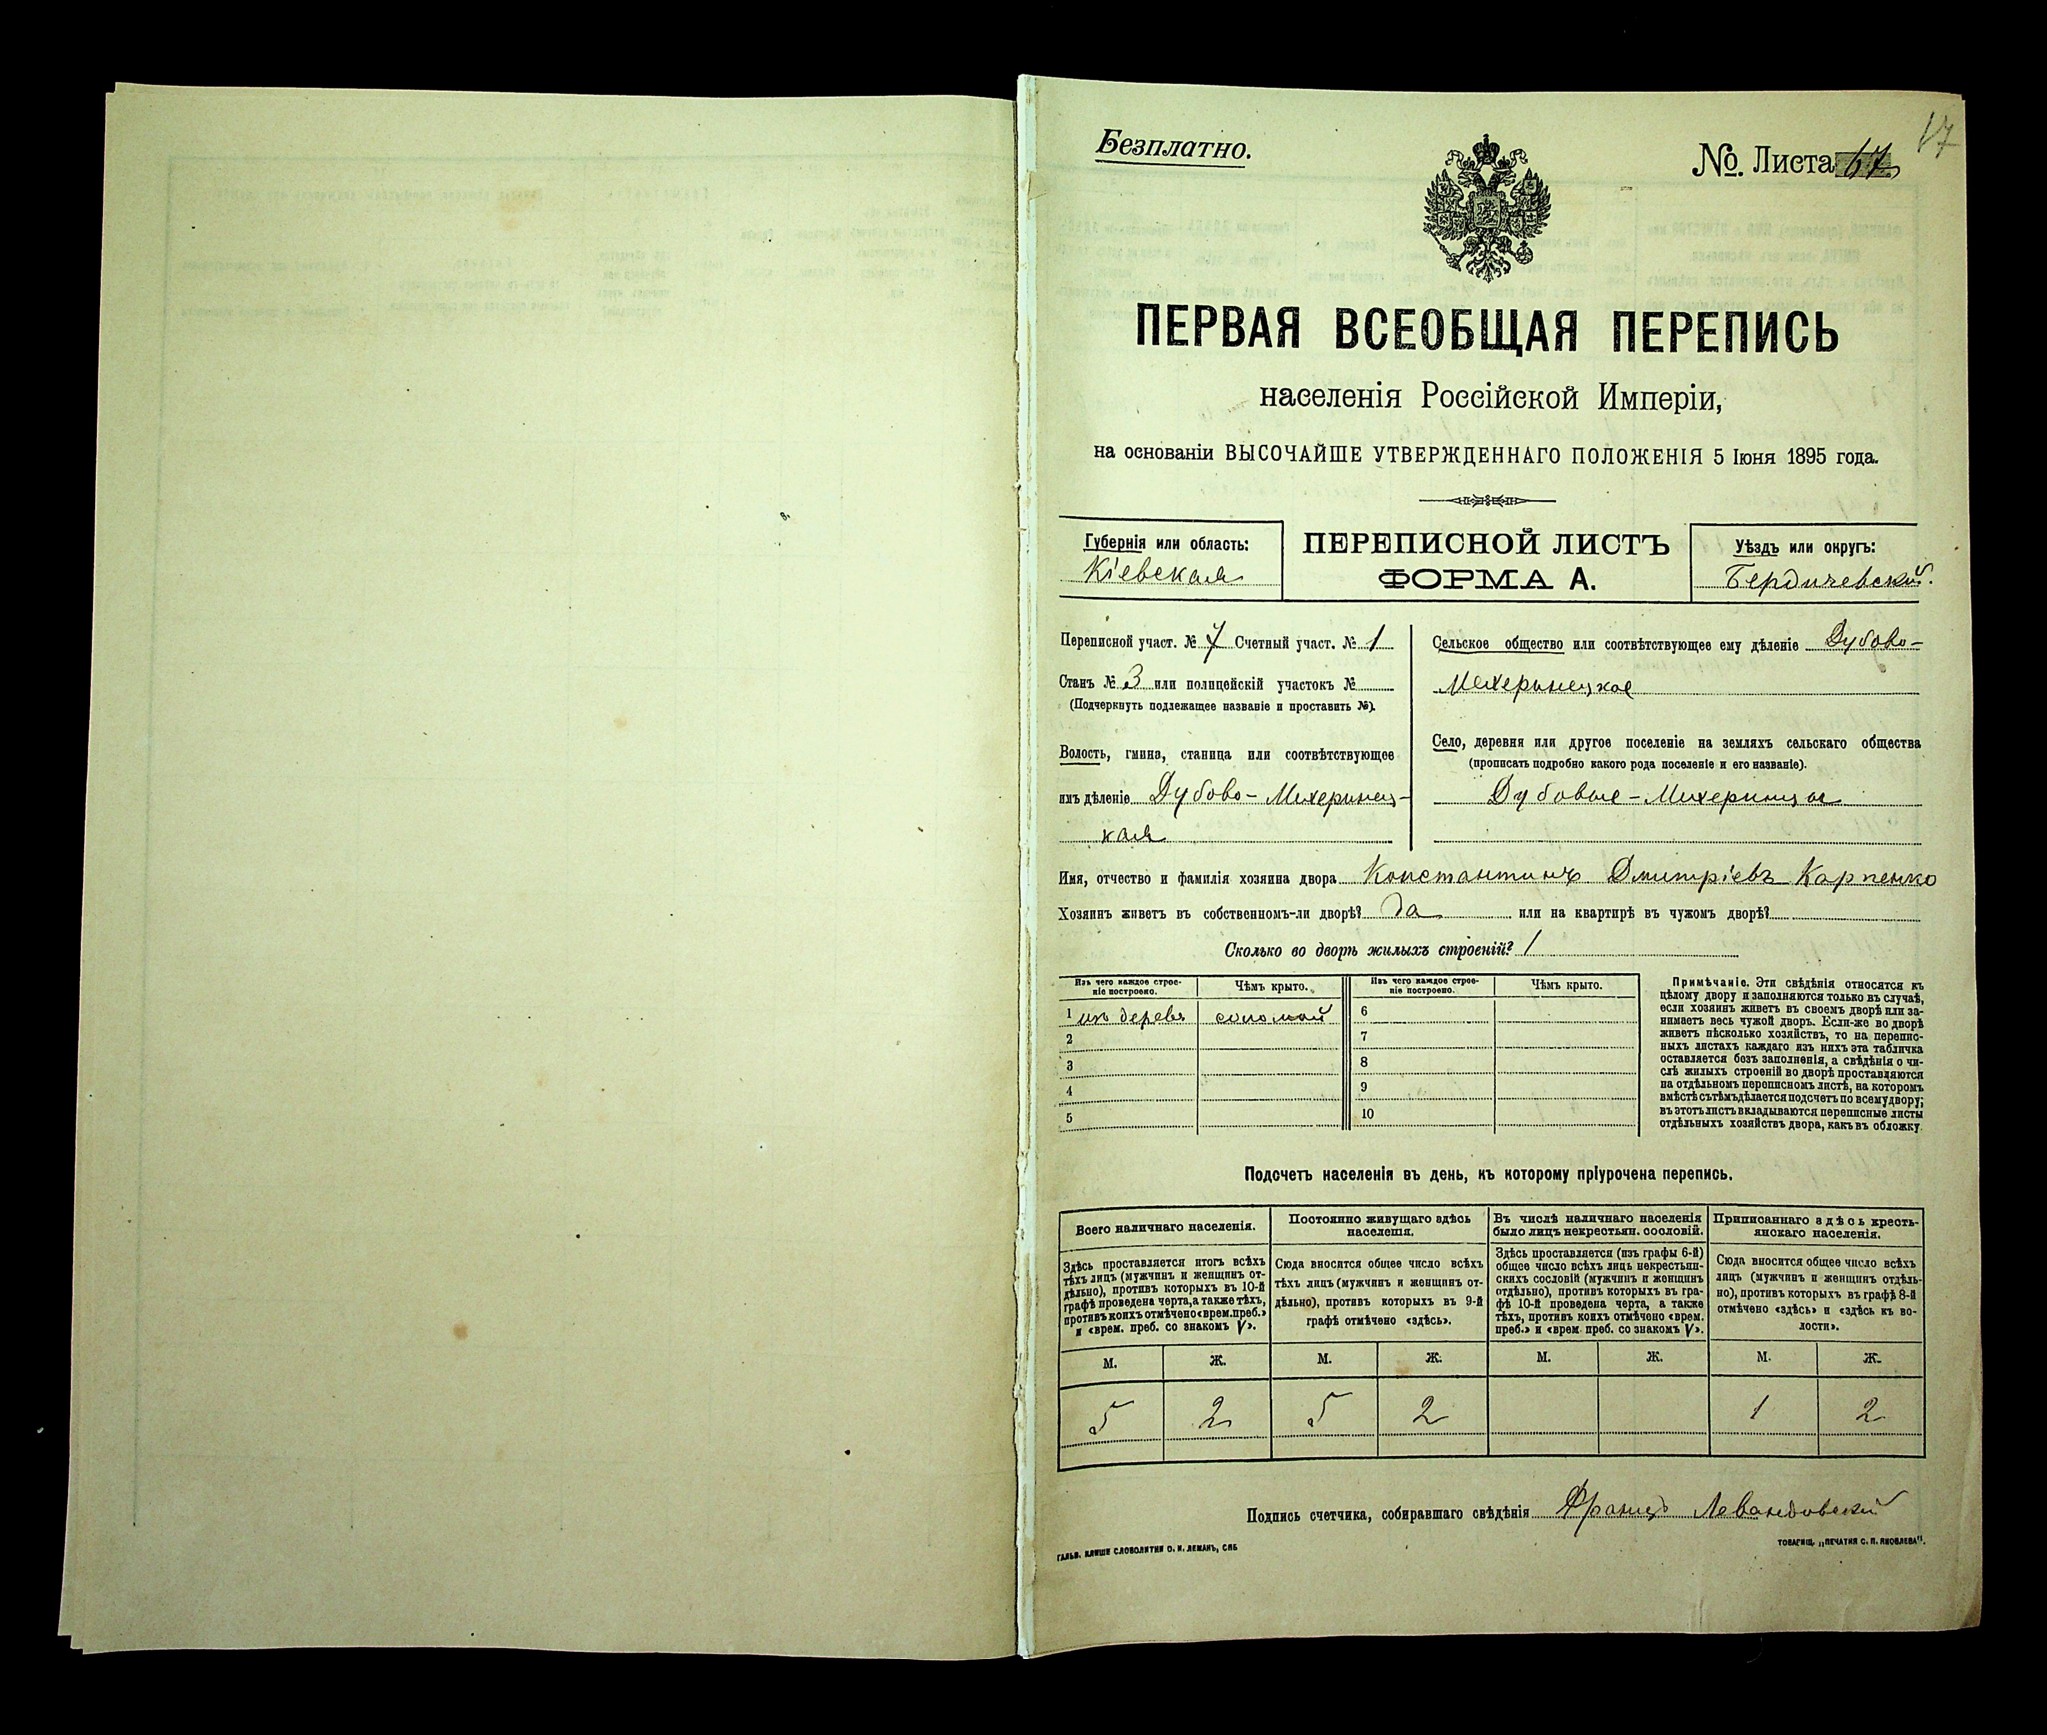 17
Безплатно.
№. Листа 67
ПЕРВАЯ ВСЕОБЩАЯ ПЕРЕПИСЬ
населенія Россійской Имперіи,
на основаніи ВЫСОЧАЙШЕ УТВЕРЖДЕННАГО ПОЛОЖЕНІЯ 5 Іюня 1895 года.
Губернія или область:
Кіевская
ПЕРЕПИСНОЙ ЛИСТЪ
ФОРМА А.
Уѣздъ или округъ:
Бердичевскій.
Переписной участ. № 7 Счетный участ. № 1
Станъ № 3 или полицейскій участокъ №
(Подчеркнуть подлежащее названіе и проставить №).
Волость, гмина, станица или соотвѣтствующее
имъ дѣленіе Дубово-Махеринец-
кая
Сельское общество или соотвѣтствующее ему дѣленіе Дубово-
Махеринецкое
Село, деревня или другое поселеніе на земляхъ сельскаго общества
(прописать подробно какого рода поселеніе и его названіе).
Дубовые-Махеринцы
Имя, отчество и фамилія хозяина двора Константинъ Дмитріевъ Карпенко
Хозяинъ живетъ въ собственномъ-ли дворѣ? да или на квартирѣ въ чужомъ дворѣ?
Сколько во дворѣ жилыхъ строеній? 1
Изъ чего каждое строе-
ніе построено.
Чѣмъ крыто.
Изъ чего каждое строе-
ніе построено.
Чѣмъ крыто.
1 изъ дерева соломой 6
2 7
3 8
4 9
5 10
Примѣчаніе. Эти свѣдѣнія относятся къ
цѣлому двору и заполняются только въ случаѣ,
если хозяинъ живетъ въ своемъ дворѣ или за-
нимаетъ весь чужой дворъ. Если-же во дворѣ
живетъ нѣсколько хозяйствъ, то на перепис-
ныхъ листахъ каждаго изъ нихъ эта табличка
оставляется безъ заполненія, а свѣдѣнія о чи-
слѣ жилыхъ строеній во дворѣ проставляются
на отдѣльномъ переписномъ листѣ, на которомъ
вмѣстѣ съ тѣмъ дѣлается подсчетъ по всему двору;
въ этотъ листъ вкладываются переписные листы
отдѣльныхъ хозяйствъ двора, какъ въ обложку.
Подсчетъ населенія въ день, къ которому пріурочена перепись.
Всего наличнаго населенія.
Здѣсь проставляется итогъ всѣхъ
тѣхъ лицъ (мужчинъ и женщинъ от-
дѣльно), противъ которыхъ въ 10-й
графѣ проведена черта, а также тѣхъ,
противъ коихъ отмѣчено «врем. преб.»
и «врем. преб. со знакомъ V».
Постоянно живущаго здѣсь
населенія.
Сюда вносится общее число всѣхъ
тѣхъ лицъ (мужчинъ и женщинъ от-
дѣльно), противъ которыхъ въ 9-й
графѣ отмѣчено «здѣсь».
Въ числѣ наличнаго населенія
было лицъ некрестьян. сословій.
Здѣсь проставляется (изъ графы 6-й)
общее число всѣхъ лицъ некрестьян-
скихъ сословій (мужчинъ и женщинъ
отдѣльно), противъ которыхъ въ гра-
фѣ 10-й проведена черта, а также
тѣхъ, противъ коихъ отмѣчено «врем.
преб.» и «врем. преб. со знакомъ V».
Приписаннаго здѣсь кресть-
янскаго населенія.
Сюда вносится общее число всѣхъ
лицъ (мужчинъ и женщинъ отдѣль-
но), противъ которыхъ въ графѣ 8-й
отмѣчено «здѣсь» и «здѣсь въ во-
лости».
М. Ж. М. Ж. М. Ж. М. Ж.
5 2 5 2 1 2
Подпись счетчика, собиравшаго свѣдѣнія Францъ Левандовскій
ГАЛЬВ. КЛИШЕ СЛОВОЛИТНИ О. И. ЛЕМАНЪ, СПБ
ТОВАРИЩ. „ПЕЧАТНЯ С. П. ЯКОВЛЕВА".